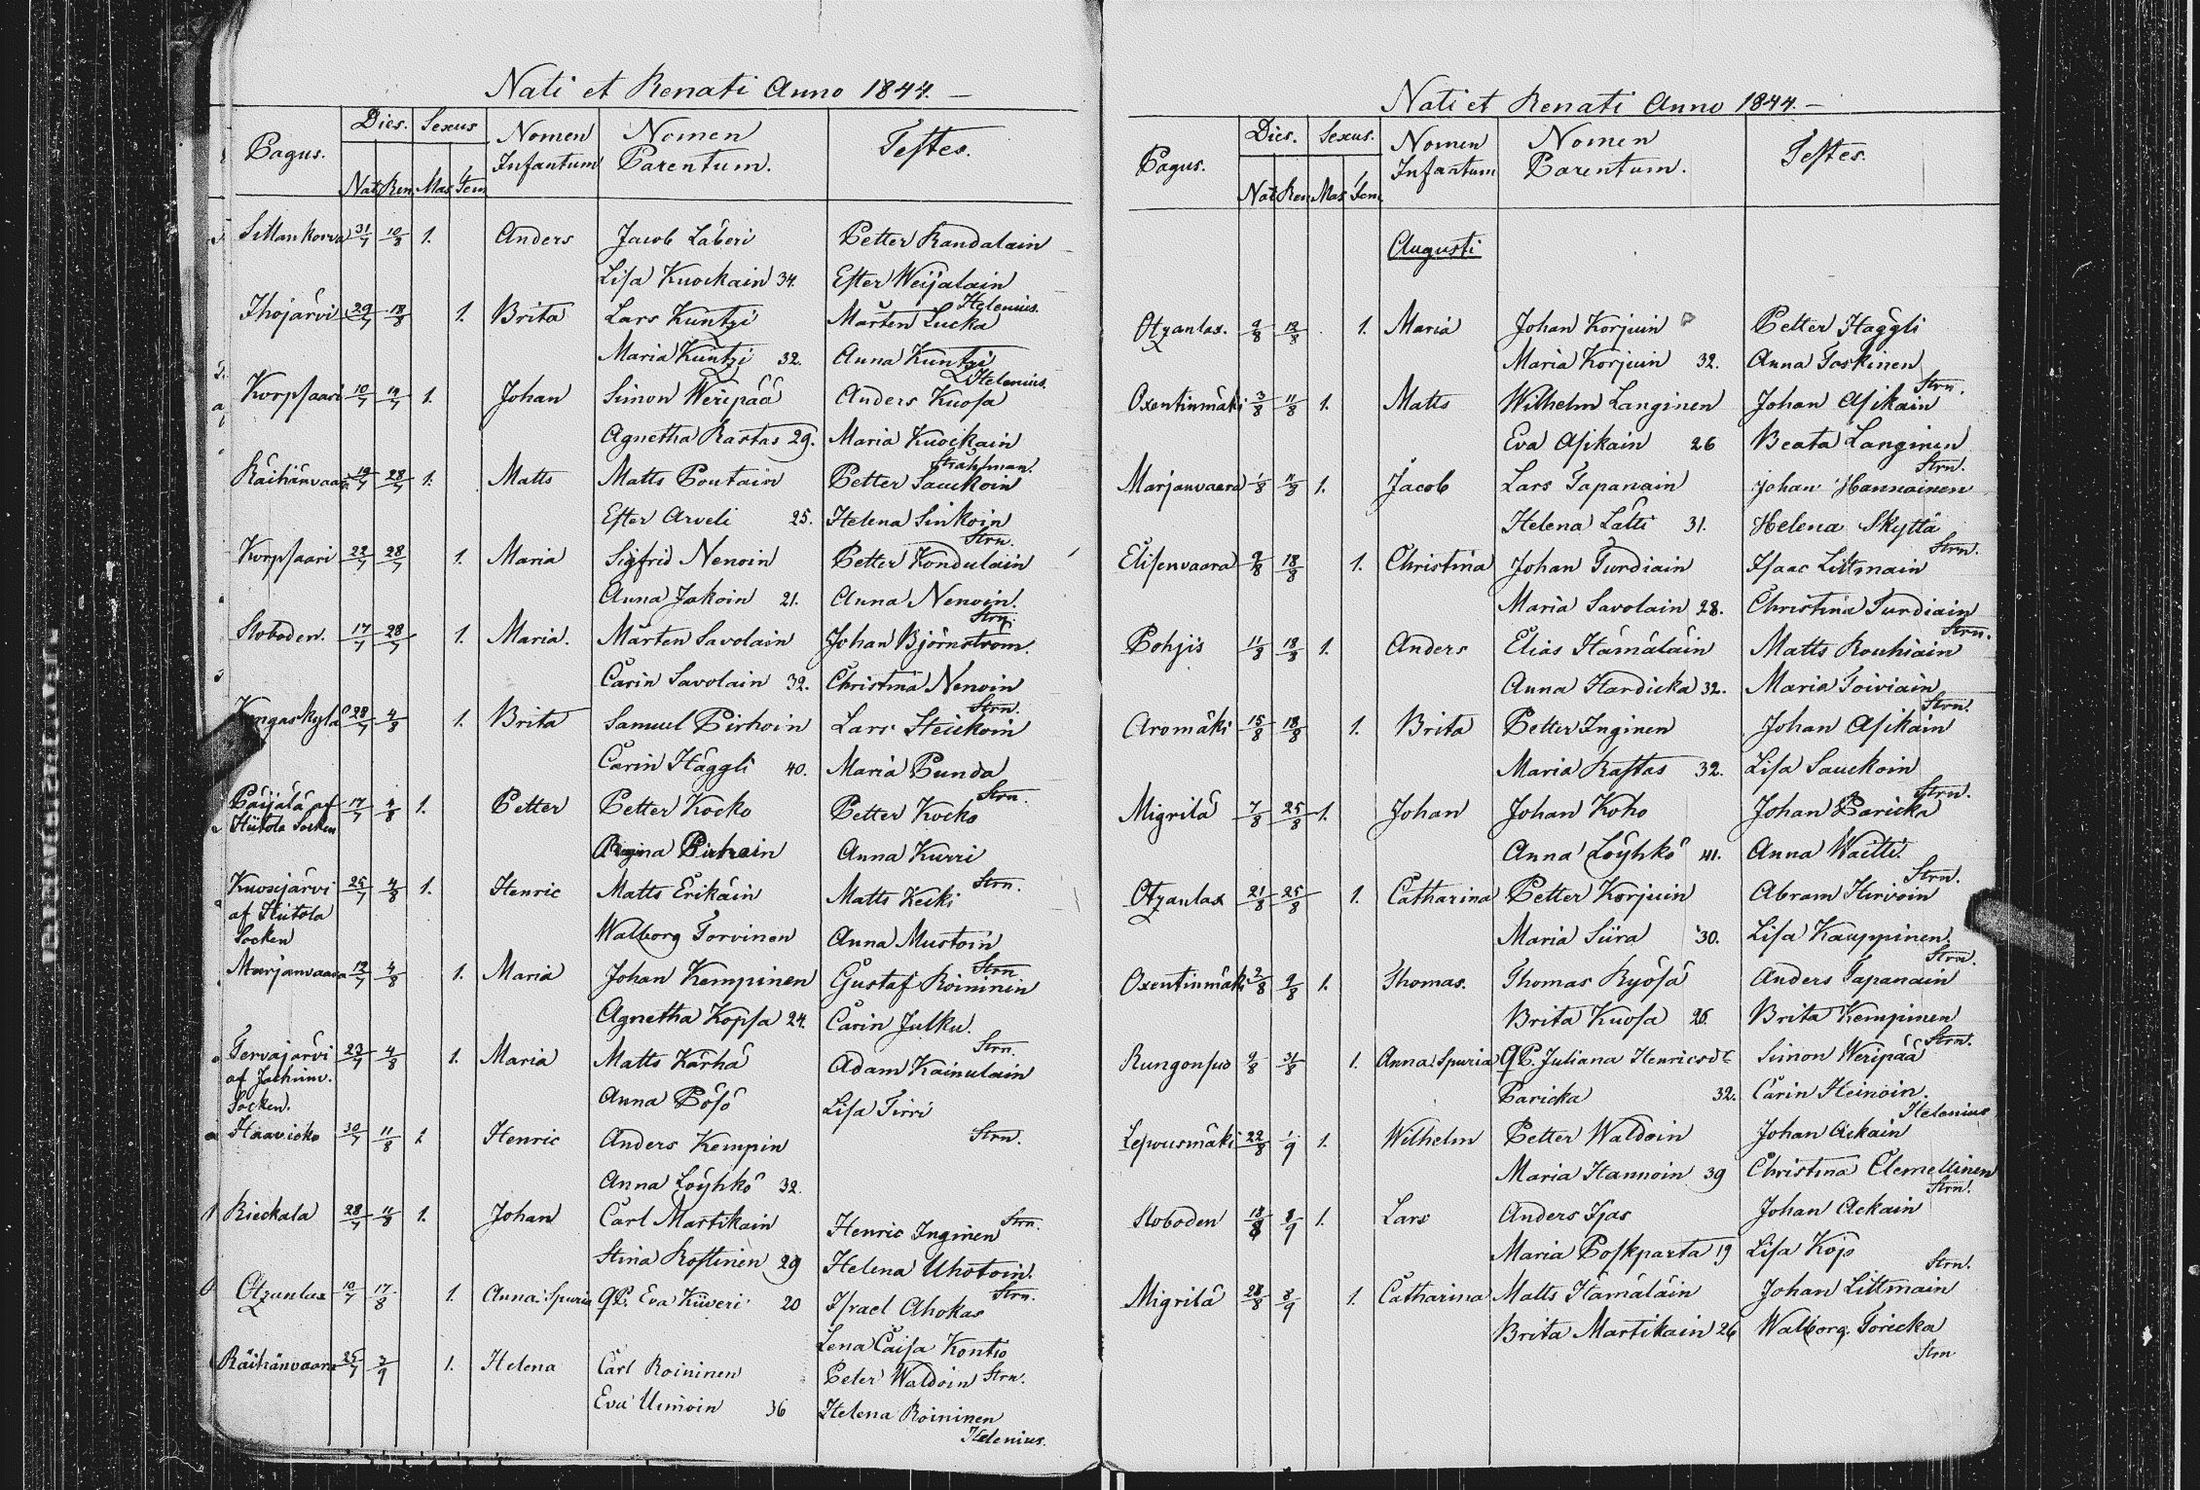 Nati et Renati Anno 1844.
Pagus. Dies. Sexus Nomen Infantum Nomen Parentum. Testes.
Nat. Ren. Mas. Fem.
31/7 10/8 1. Anders Jacob Läberi Petter Randalain
Lisa Kuockain 34. Ester Weijalain
Helenius.
Ihojärvi 29/7 18/8 1. Brita Lars Kuntzi Mårten Lucka
Maria Kuntzi 32. Anna Kuntzi
Helenius.
Korpsaari 10/7 14/7 1. Johan Simon Weripää Anders Kuosa
Agnetha Rastas 29. Maria Kuockain
Stråhlman.
Räihänvaara 19/7 28/7 1. Matts Matts Poutain Petter Sauckoin
Ester Arveli 25. Helena Sinkoin
Strn.
Korpsaari 22/7 28/7 1. Maria Sigfrid Nenoin Petter Kondulain
Anna Jakoin 21. Anna Nenoin.
Strn.
Sloboden. 17/7 28/7 1. Maria. Mårten Savolain Johan Björnström.
Carin Savolain 32. Christina Nenoin
Strn.
Kangaskylä 28/7 4/8 1. Brita Samuel Pirhoin Lars Heickoin
Carin Häggli 40. Maria Punda
Strn.
Päijälä af 17/7 4/8 1. Petter Petter Kocko Petter Kocko
Hiitola Socken
Regina Pirhoin Anna Kurri
Strn.
Kuosijärvi 25/7 4/8 1. Henric Matts Erikäin Matts Kecki
af Hiitola
Socken Walborg Torvinen Anna Mustoin
Strn
Marjanvaara 19/7 4/8 1. Maria Johan Kempinen Gustaf Roininen
Agnetha Kopsa 24. Carin Julku.
Strn.
Tervajärvi 23/7 4/8 1. Maria Matts Kärhä Adam Kainulain
af Jachim.
Socken. Anna Pösö Lisa Tirri
Strn.
Haavicko 30/7 11/8 1. Henric Anders Kempin
Anna Löyhkö 32.
Strn.
Rieckala 28/7 11/8 1. Johan Carl Martikain Henric Inginen
Stina Rostinen 29 Helena Uhotoin.
Strn.
Otzanlax 10/7 17/8 1. Anna. Spuria QP. Eva Kiiveri 20 Israel Ahokas
Lena Caisa Kontio
Strn.
Räihänvaara 25/7 3/9 1. Helena Carl Roininen Peter Waldoin
Eva Uimoin 36 Helena Roininen
Helenius.
Nati et Renati Anno 1844.
Pagus. Dies. Sexus. Nomen Infantum Nomen Parentum. Testes.
Nat. Ren. Mas. Fem.
Augusti
Otzanlax. 9/8 12/8 1. Maria Johan Korjuin Petter Häggli
Maria Korjuin 32. Anna Toskinen
Strn.
Oxentinmäki 3/8 11/8 1. Matts Wilhelm Langinen Johan Asikain
Eva Asikain 26 Beata Langinen
Strn.
Marjanvaara 1/8 11/8 1. Jacob Lars Tapanain Johan Hannoinen
Helena Lätti 31. Helena Skyttä
Strn.
Elisenvaara 9/8 18/8 1. Christina Johan Turdiain Isaac Littmain
Maria Savolain 28. Christina Turdiain
Strn.
Pohjis 11/8 18/8 1. Anders Elias Hämäläin Matts Rouhiain
Anna Hardicka 32. Maria Toiviain
Strn.
Aromäki 15/8 18/8 1. Brita Petter Inginen Johan Asikain
Maria Rastas 32. Lisa Sauckoin
Strn.
Migrilä 7/8 25/8 1. Johan Johan Koho Johan Paricka
Anna Löyhkö 41. Anna Waitti.
Strn.
Otzanlax 21/8 25/8 1. Catharina Petter Korjuin Abram Hirvoin
Maria Siira 30. Lisa Kauppinen.
Strn.
Oxentinmäki 2/8 9/8 1. Thomas. Thomas Ryösä Anders Tapanain
Brita Kuosa 26. Brita Kempinen
Strn.
Rungonsuo 9/8 31/8 1. Anna. Spuria QP. Juliana Henricsdt Simon Weripää
Paricka 32. Carin Heinoin.
Helenius
Lepousmäki 22/8 1/9 1. Wilhelm Petter Waldoin Johan Ackain
Maria Hannoin 39 Christina Clemettinen
Strn.
Sloboden 18/8 8/9 1. Lars Anders Ijas Johan Ackain
Maria Poskparta 19 Lisa Kojo
Strn.
Migrilä 28/8 8/9 1. Catharina Matts Hämäläin Johan Littmain
Brita Martikain 26 Walborg Toricka
Strn